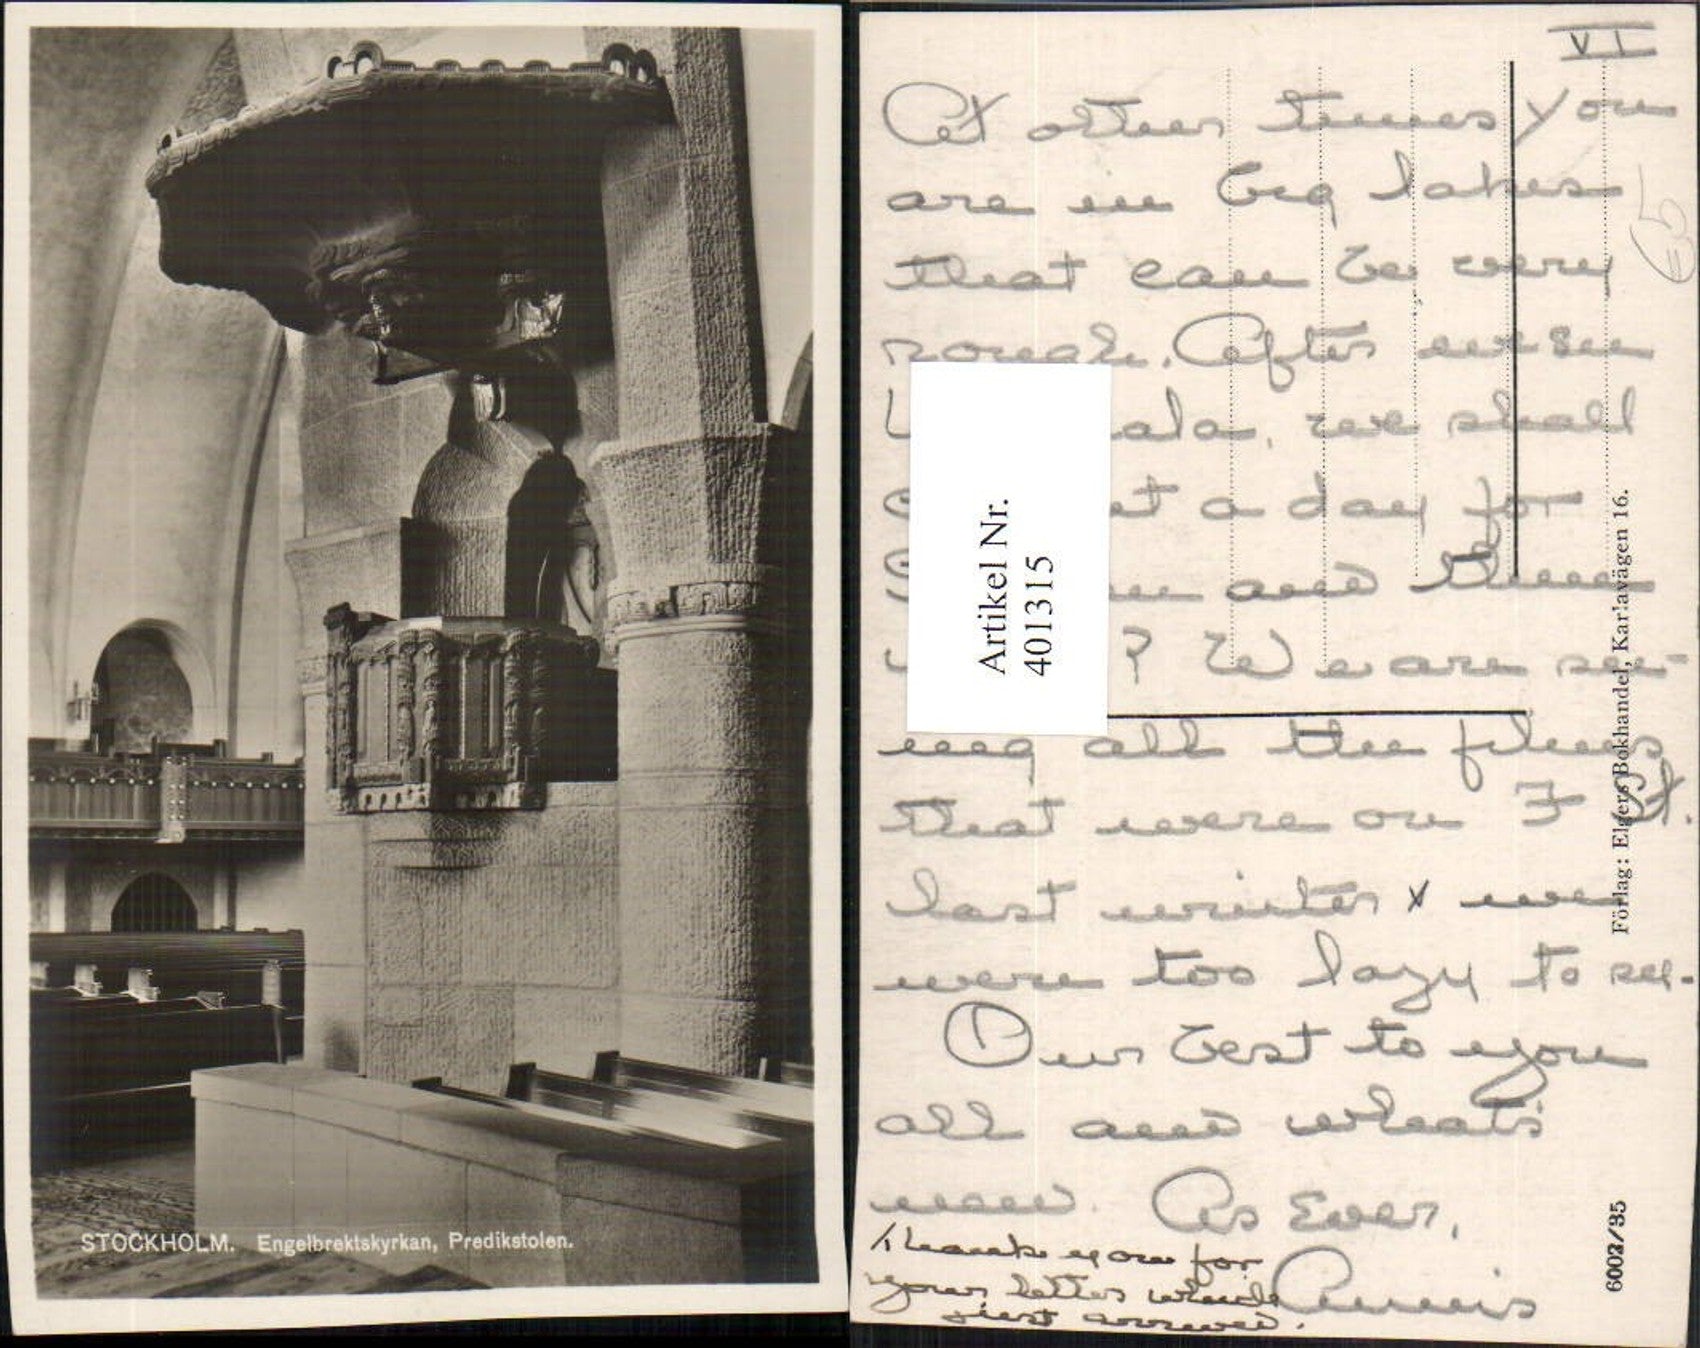 STOCKHOLM. Engelbrektskyrkan, Predikstolen.
VI
At other times you
are in big lakes
that can be very
rough. After we see
ala, we shall
at a day for
and then
? We are see-
ing all the films
that were on F St.
last winter & we
were too lazy to see.
Our best to you
all and what's
new. As Ever,
Annis
Thank you for
your letter which
just arrived.
Artikel Nr.
401315
Förlag: Elgers Bokhandel, Karlavägen 16.
6002/35